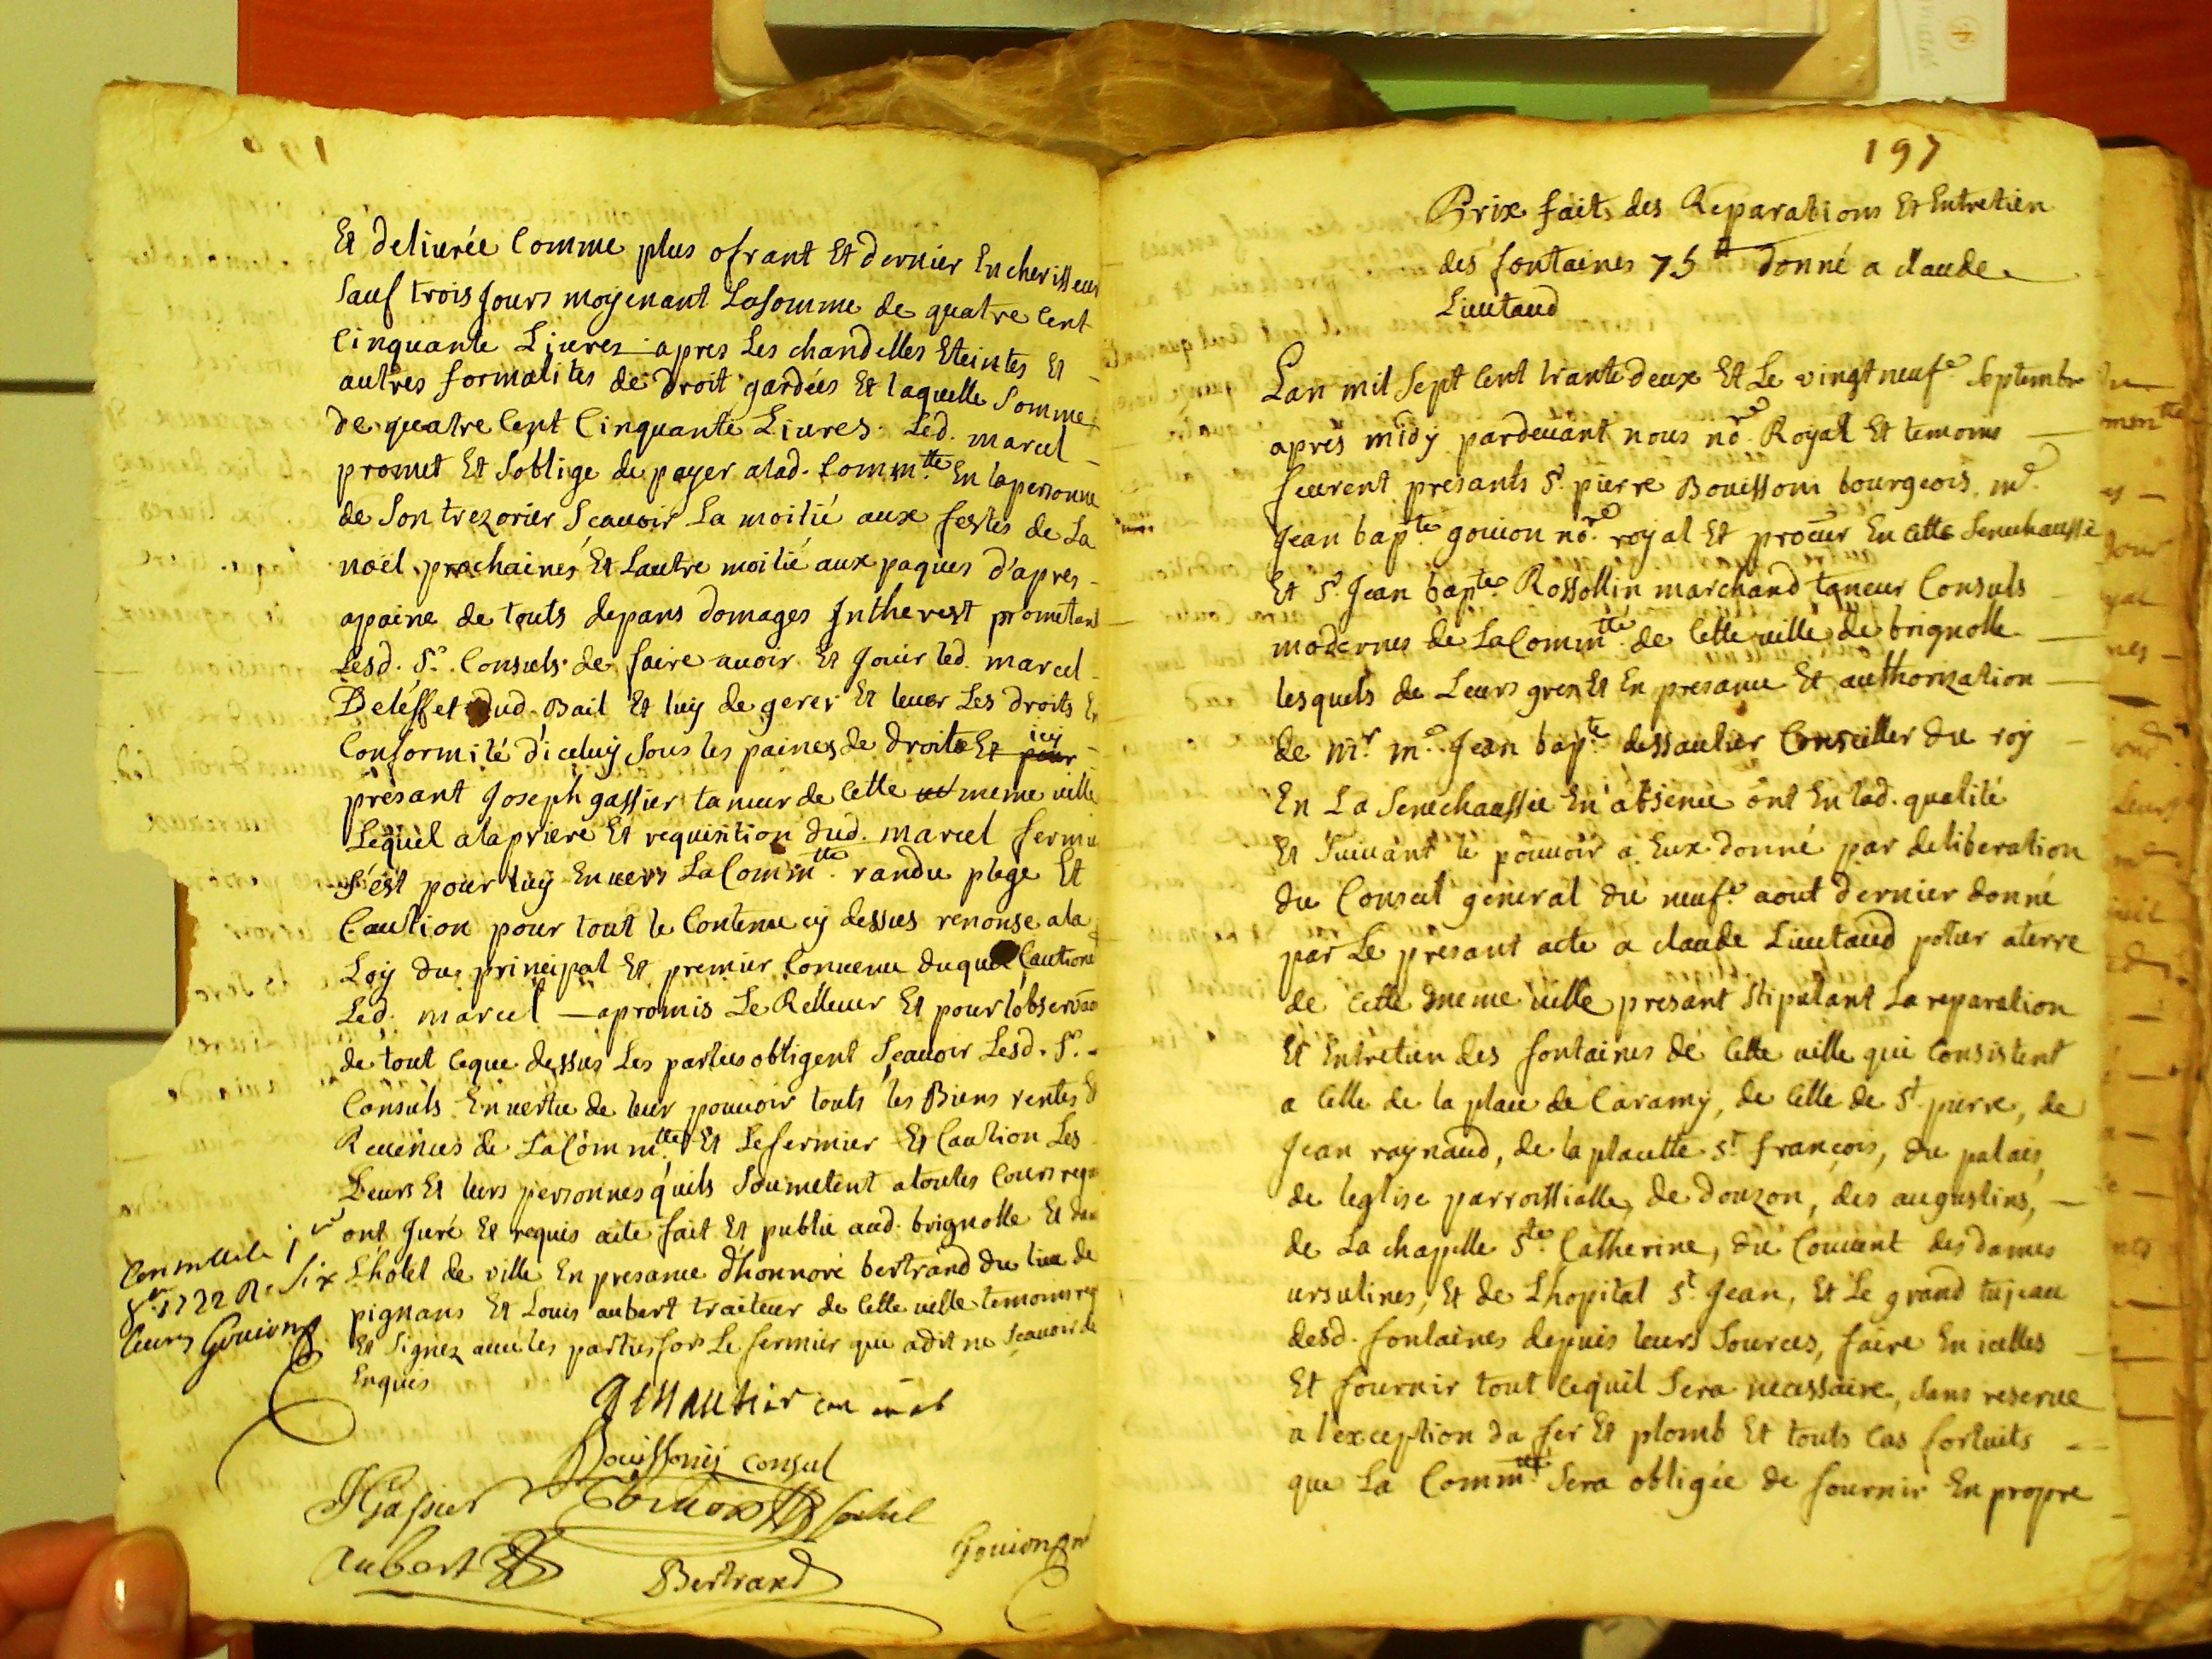 Et deliurée Comme plus ofrant Et dernier Encherisseur
sauf trois Jours moyenant Lasomme de quatre Cent
Cinquante Liures apres Les chandelles Eteintes Et
autres formalites de droit gardées Et laquelle Somme
de quatre Cent Cinquante Liures. Led. marcel
promet Et Soblige de payer alad. Commtte. En lapersonne
de Son trezorier Scauoir La moitié aux festes de La
noël prochaines Et Lautre moitié aux paques d'apres
apaine de touts depans domages Intherest prometant
Lesd. Srs. Consuls de faire auoir Et Jouir led. marcel
De lesfet dud. Bail Et luy de gerer Et leuer Les droits En
Conformité d'iceluy Sous les paines de droit Et pour icy
présant Joseph gassier taneur de Cette meme uille
Lequel alapriere Et requisition dud. marcel fermier
s'est pour luy Enuers LaCommtte. randu plege Et
Caution pour tout le Contenu cy dessus renonse ala
Loy du principal Et premier Conuenu duquel Cautione
Led. marcel apromis Le Relleuer Et pour lobseruaon
de tout Ceque dessus Les parties obligent Scauoir Lesd. Srs.
Consuls En uertu de leur pouuoir touts les Biens rentes Et
Reuenus de LaCommtte. Et Lefermier Et Caution Les
Leurs Et leurs personnes quils Soumetent atoutes Cours
ont Juré Et requis acte fait Et publié aud. brignolle Et dans
L'hôtel de ville En presance d'honnoré bertrand du lieu de
pignans Et Louis aubert traiteur de Cette uille temoins req
Et Signez auec les parties fors Le fermier qui adit ne Scauoir de
Enquis
8bre 1732 R. Six
Gouion
Bouissony Consul
JGassier
Gouion Consul
Aubert
Bertrand
Gouion nre
197
Prix fait des Reparations Et Entretien
des fontaines 75 ₶ donné a claude
Lieutaud
Lan mil Sept Cent trante deux Et Le vingt neufe. Septembre
après midy pardeuant nous nore. Royal Et temoins
feurent présants Sr. pierre Bouissoni bourgeois, me.
Jean bapte. gouion nore. royal Et procur En Cette Senechaussée
Et Sr. Jean bapte. Rossollin marchand taneur Consuls
modernes de LaCommtte. de Cette uille de brignolle
lesquels de Leurs grez Et En presance Et authorization
de mr. me. Jean bapte. dessautier Conseiller du roy
En La Senechaussée En absence ont En lad. qualité
Et Suiuant le pouuoir a Eux donné par deliberation
du Conseil general du neufe. aout dernier donné
par Le presant acte a claude Lieutaud potier aterre
de Cette meme uille presant Stipulant La reparation
Et Entretien des fontaines de Cette uille qui Consistent
a Celle de la place de Caramy, de Celle de St. pierre, de
Jean raynaud, de la placette St. françois, du palais,
de leglise parroissialle, de Douzon, des augustins,
de La chapelle Ste. Catherine, du Couuent des dames
ursulines, Et de Lhopital St. Jean, Et Le grand tujeau
desd. fontaines depuis leurs Sources, faire En icelles
Et fournir tout Cequil Sera necessaire, Sans reserue
a l'exception du fer Et plomb Et touts Cas fortuits
que La Commtte. Sera obligée de fournir En propre